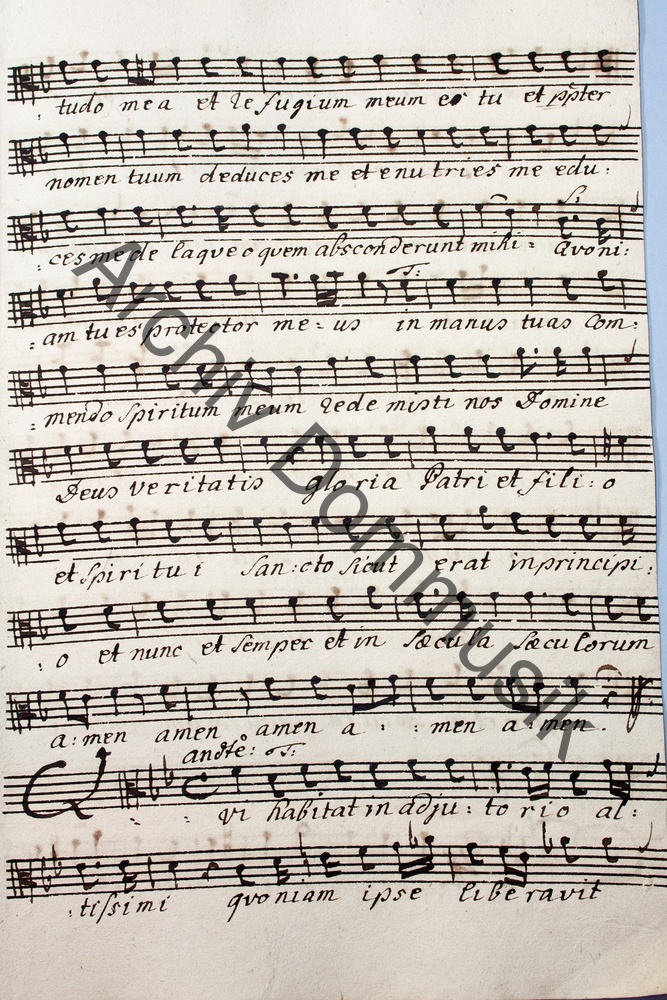 tudo mea et refugium meum es tu et ppter
nomen tuum deduces me et enutries me edu:
S:
:ces me de laqueo quem absconderunt mihi: quoni:
T:
:am tu es protector me:us in manus tuas Com:
:mendo Spiritum meum redemisti nos Domine
Deus veritatis gloria Patri et fili:o
et Spiritui San:cto sicut erat in principi:
:o et nunc et semper et in sæcula sæculorum
a:men amen amen a : : men a:men.
andte: T:
Qvi habitat in adju:torio al:
:tissimi quoniam ipse liberavit
Archiv Dommusik